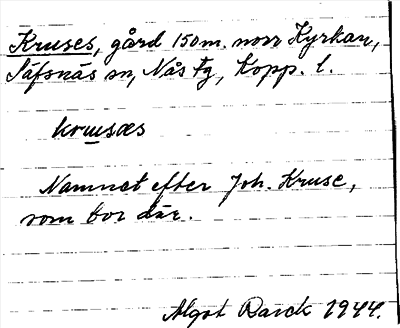 Kruses, gård 150 m. norr Kyrkan,
Säfsnäs sn, Nås tg, Kopp. l.
krusæs
Namnet efter Joh. Kruse,
som bor där.
Algot Rarck 1944.